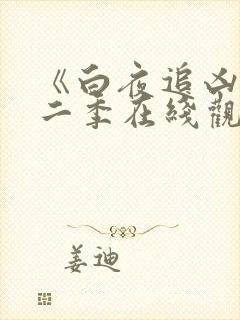 《白夜追凶
二季在綫觀
姜迪